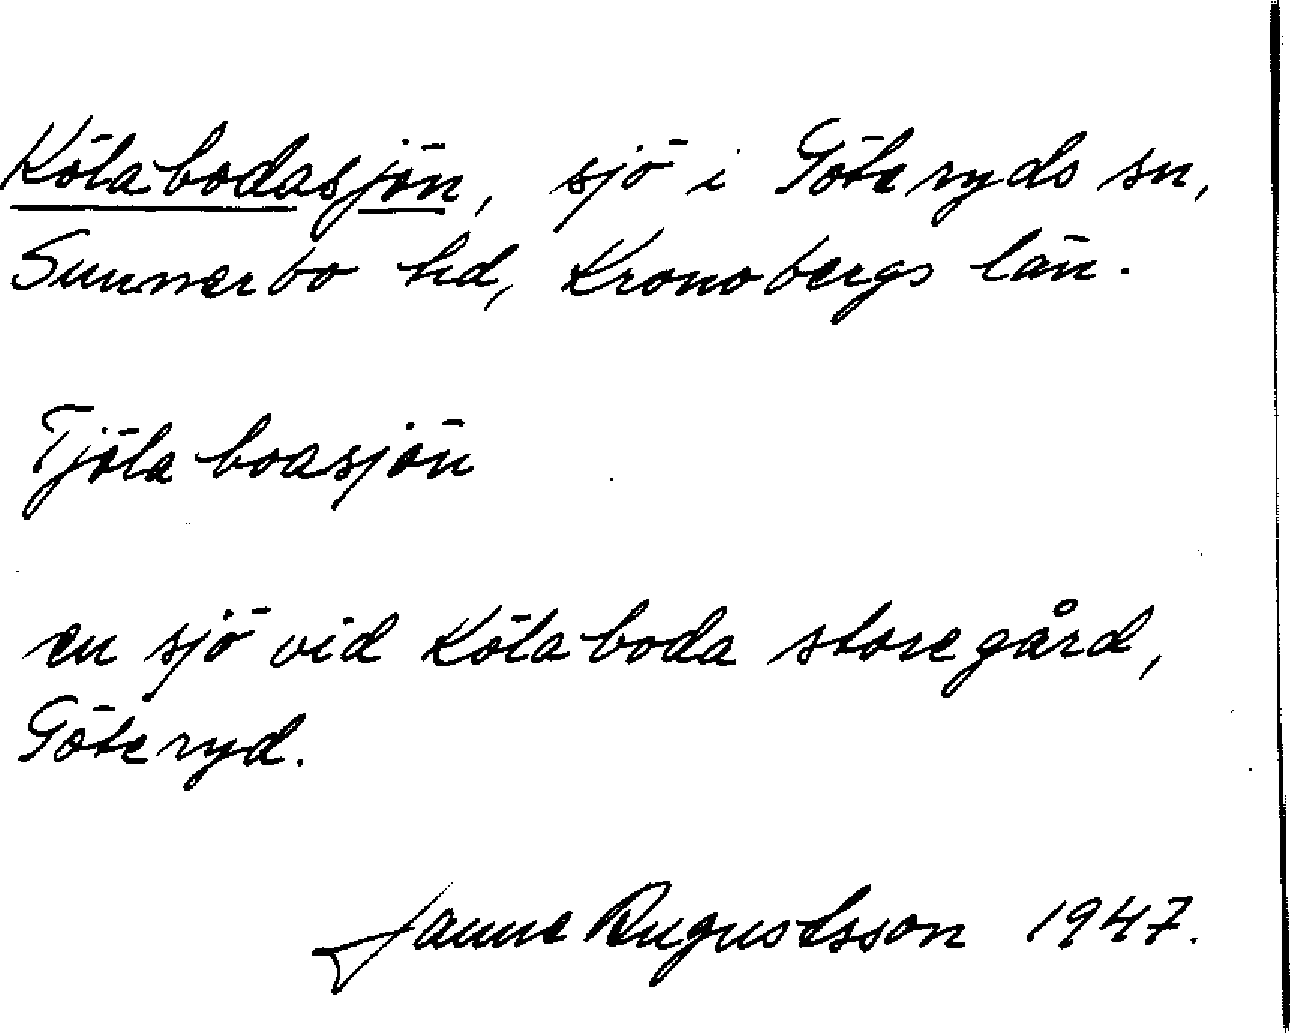 Kölabodasjön, sjö i Göteryds sn,
Sunnerbo hd, Kronobergs län.
Tjölaboasjön
en sjö vid Kölaboda storegård,
Göteryd.
Janne Augustsson 1947.